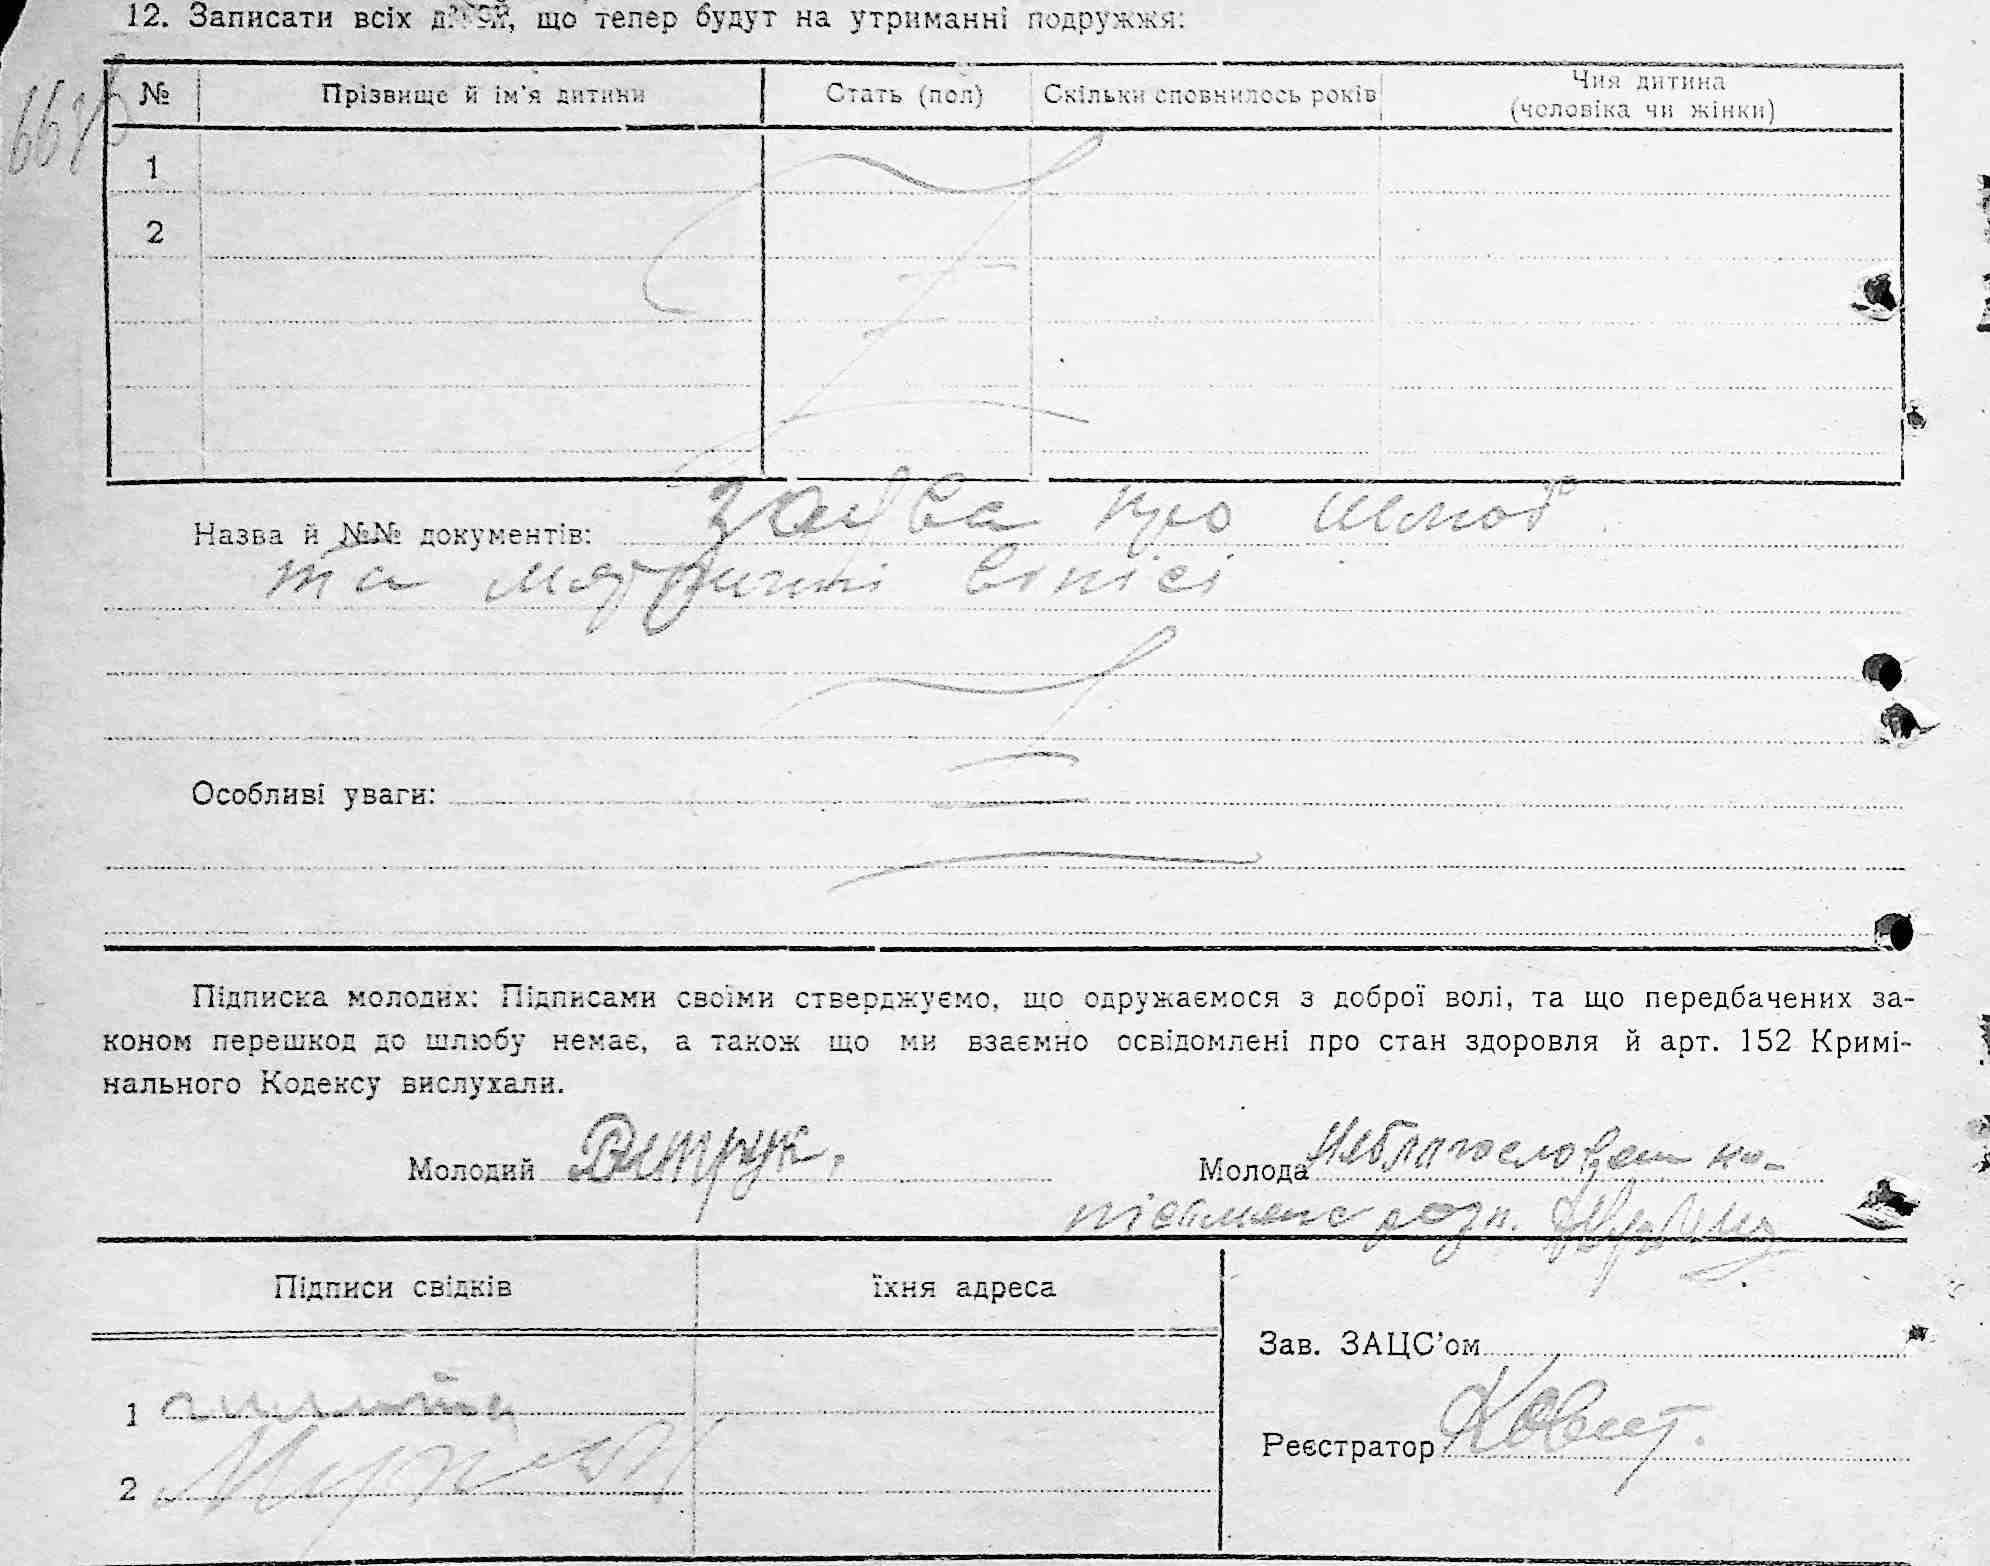 12. Записати всіх дітей, що тепер будут на утриманні подружжя:
№ Прізвище й ім'я дитини Стать (пол) Скільки сповнилось років Чия дитина
(чоловіка чи жінки)
1
2
Назва й №№ документів: Заява про шлюб
та метричні виписі
Особливі уваги:
Підписка молодих: Підписами своїми стверджуємо, що одружаємося з доброї волі, та що передбачених за-
коном перешкод до шлюбу немає, а також що ми взаємно освідомлені про стан здоровля й арт. 152 Кримі-
нального Кодексу вислухали.
Молодий Вітрук. Молода
розп.
Підписи свідків їхня адреса
Зав. ЗАЦС'ом
1
Реєстратор
2